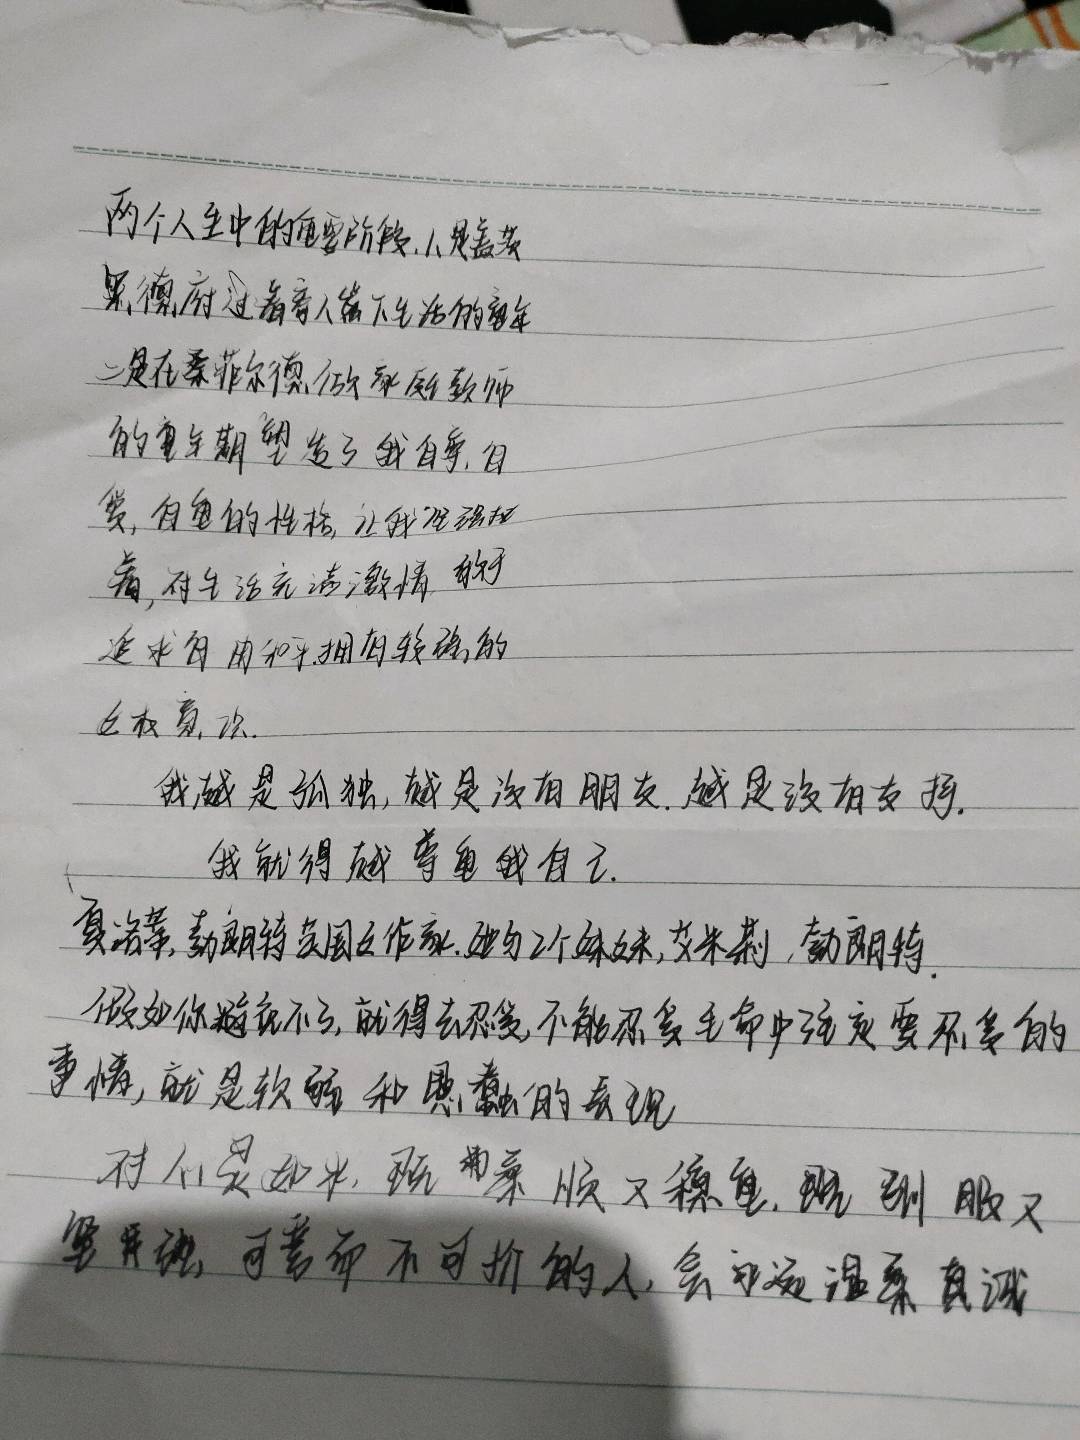 两个人生中的重要阶段,1、是盖茨
黑德府过着寄人篱下生活的童年
二是在桑菲尔德做家庭教师
的童年期塑造了我自尊,自
爱,自重的性格,让我
着,对生活充满激情,敢于
追求自由和平.拥有较强的
女权意识.
我越是孤独,越是没有朋友.越是没有支持.
我就得越尊重我自己.
夏洛蒂,勃朗特英国女作家.她与2个妹妹,艾米莉,勃朗特.
假如你避免不了,就得去忍受,不能忍受生命中注定要忍受的
事情,就是软弱和愚蠢的表现
对人灵如水,既柔顺又稳重,既驯服又
坚 可弯而不可折的人,会永远温柔真诚